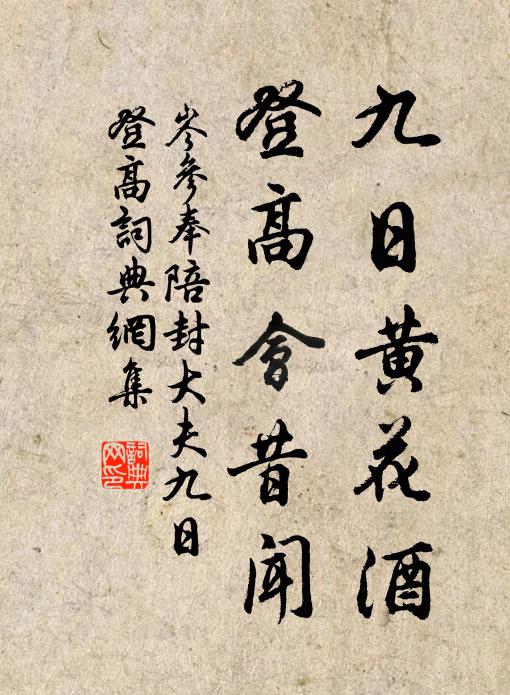 九日黄花酒
登高會昔聞
岑參奉陪封大夫九日
登高詞典網集
詞典網印